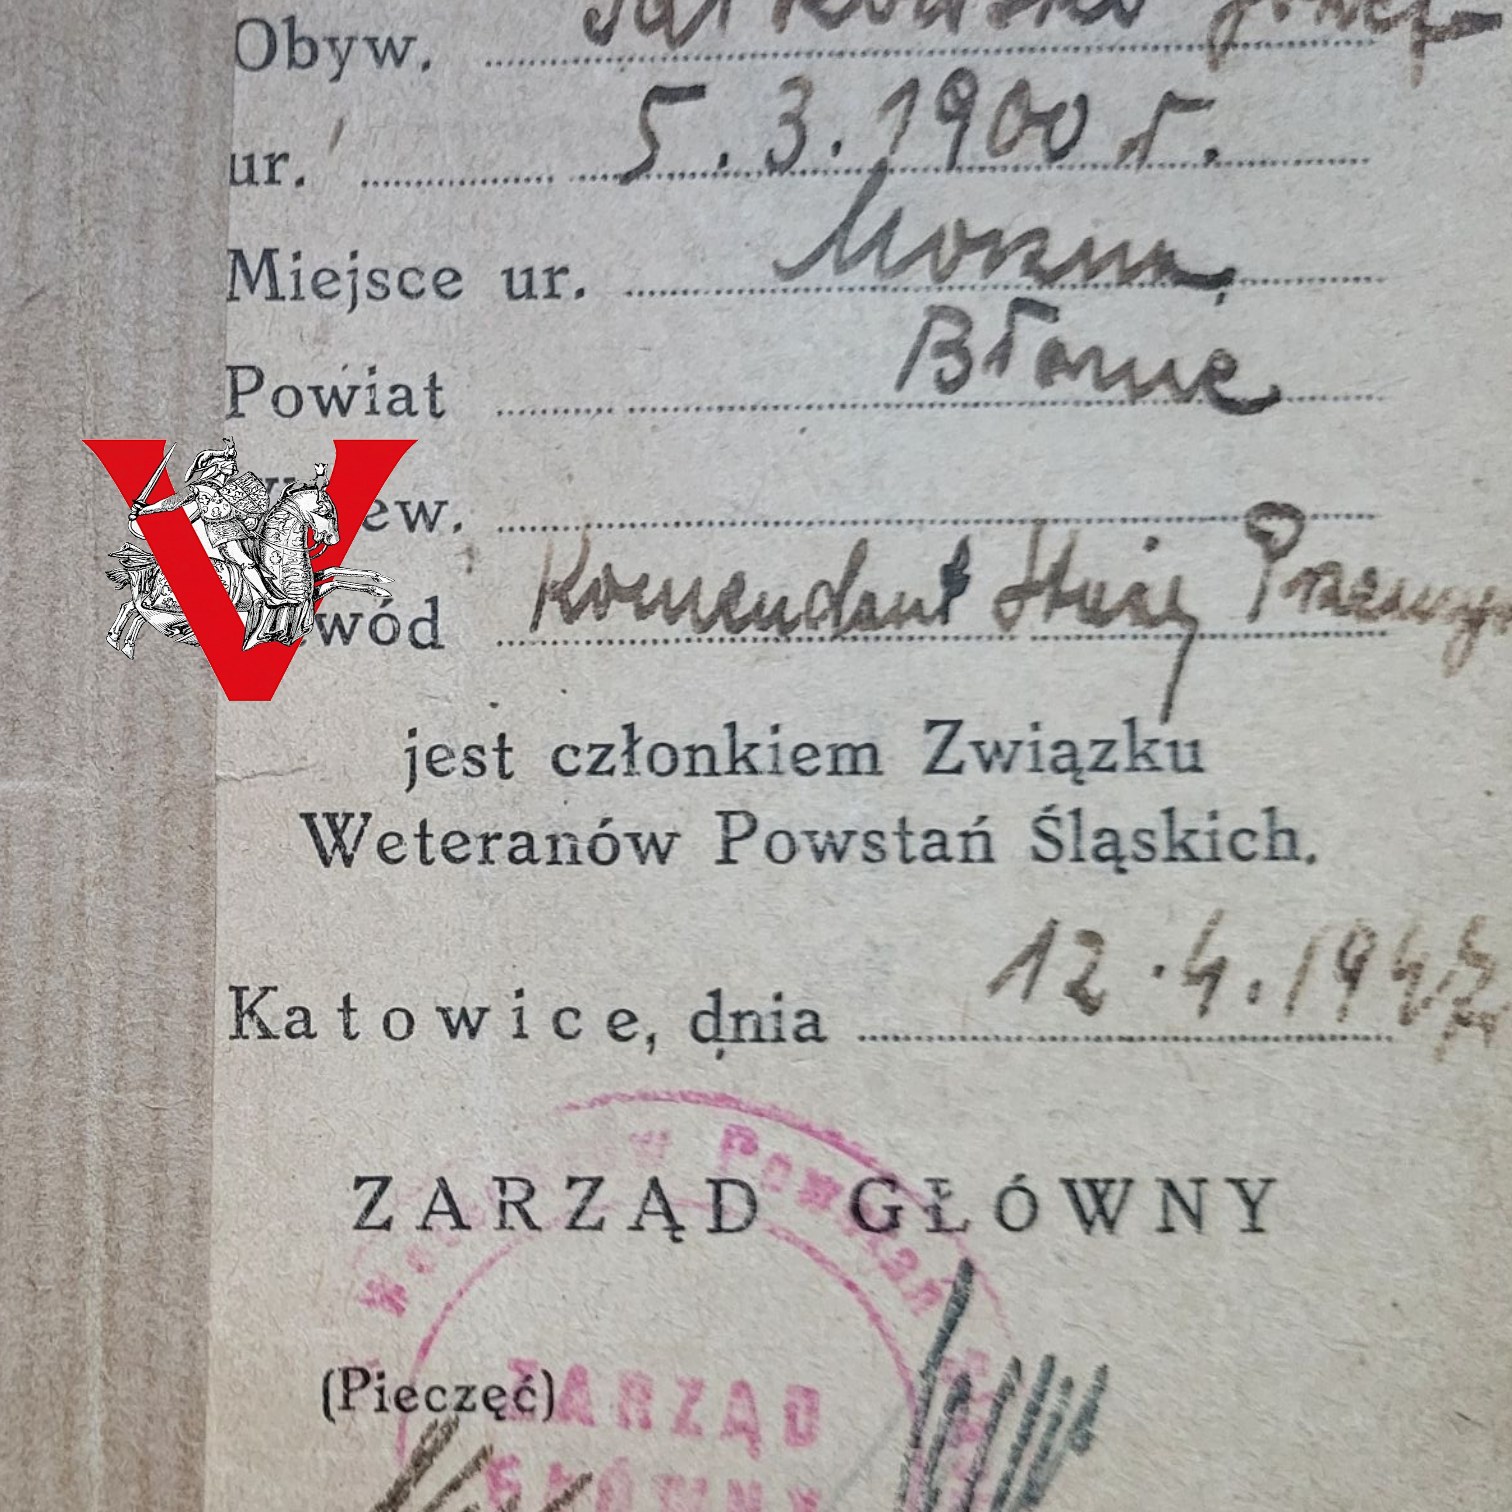 Obyw.
ur. 5.3.1900 r.
Miejsce ur.
Powiat Błonie
ew.
wód Komendant Straży Przemysł
jest członkiem Związku
Weteranów Powstań Śląskich.
Katowice, dnia 12.4.1947
ZARZĄD GŁÓWNY
(Pieczęć)
Powstań
ZARZĄD
GŁÓWNY
V